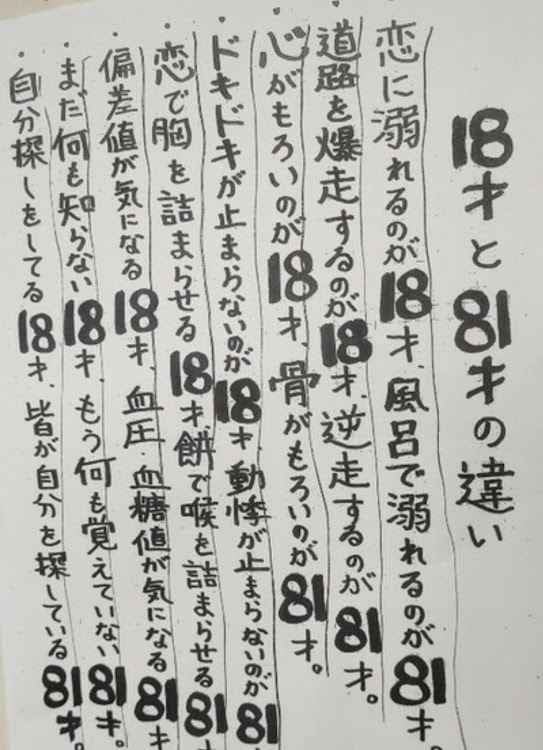 18才と81才の違い
恋に溺れるのが18才、風呂で溺れるのが81才。
道路を爆走するのが18才、逆走するのが81才。
心がもろいのが18才、骨がもろいのが81才。
ドキドキが止まらないのが18才、動悸が止まらないのが81才
恋で胸を詰まらせる18才、餅で喉を詰まらせる81才
偏差値が気になる18才、血圧・血糖値が気になる81才
まだ何も知らない18才、もう何も覚えていない81才。
自分探しをしてる18才、皆が自分を探している81才。